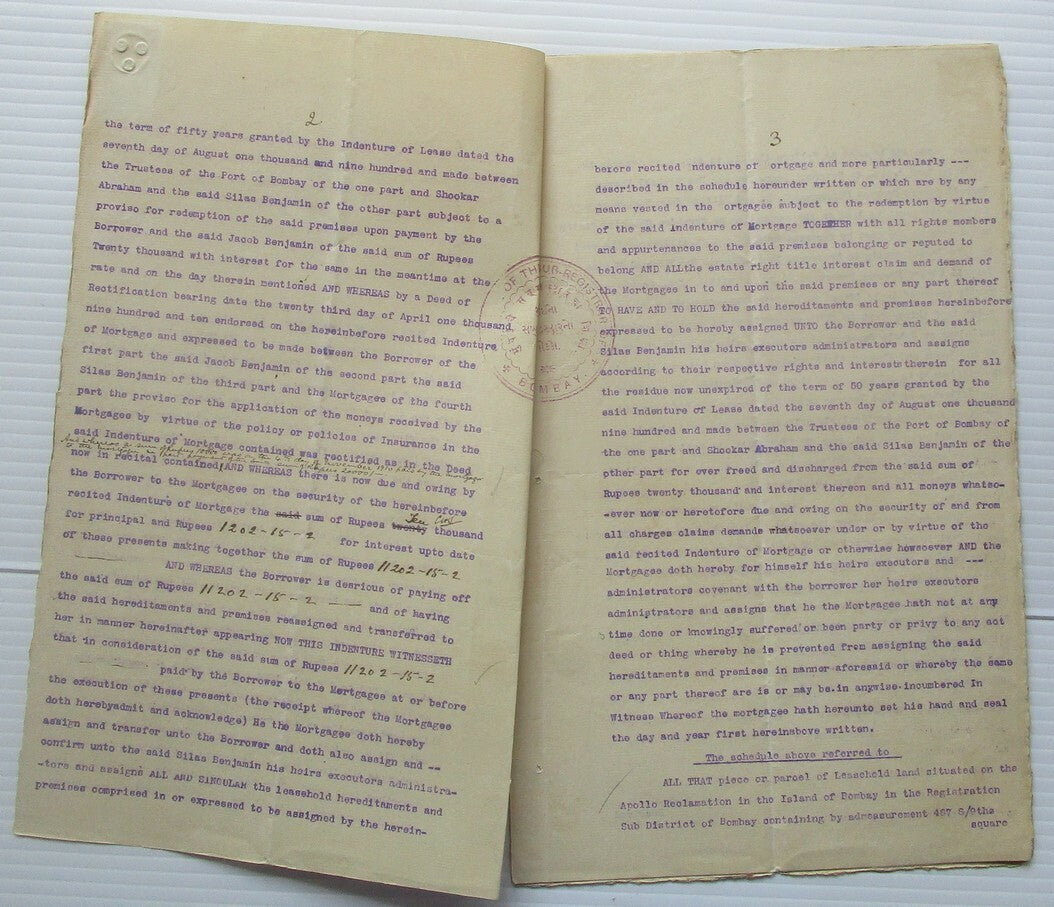 2
the term of fifty years granted by the Indenture of Lease dated the
seventh day of August one thousand and nine hundred and made between
the Trustees of the Port of Bombay of the one part and Shookar
Abraham and the said Silas Benjamin of the other part subject to a
proviso for redemption of the said premises upon payment by the
Borrower and the said Jacob Benjamin of the said sum of Rupees
Twenty thousand with interest for the same in the meantime at the
rate and on the day therein mentioned AND WHEREAS by a Deed of
Rectification bearing date the twenty third day of April one thousand
nine hundred and ten endorsed on the hereinbefore recited Indenture
of Mortgage and expressed to be made between the Borrower of the
first part the said Jacob Benjamin of the second part the said
Silas Benjamin of the third part and the Mortgagee of the fourth
part the proviso for the application of the moneys received by the
Mortgagee by virtue of the policy or policies of Insurance in the
said Indenture of Mortgage contained was rectified as in the Deed
now in recital contained AND WHEREAS there is now due and owing by
the Borrower to the Mortgagee on the security of the hereinbefore
recited Indenture of Mortgage the said sum of Rupees twenty Ten thousand
for principal and Rupees 1202-15-2 for interest upto date
of these presents making together the sum of Rupees 11202-15-2
AND WHEREAS the Borrower is desrious of paying off
the said sum of Rupees 11202-15-2 and of having
the said hereditaments and premises reassigned and transferred to
her in manner hereinafter appearing NOW THIS INDENTURE WITNESSETH
that in consideration of the said sum of Rupees 11202-15-2
paid by the Borrower to the Mortgagee at or before
the execution of these presents (the receipt whereof the Mortgagee
doth herebyadmit and acknowledge) He the Mortgagee doth hereby
assign and transfer unto the Borrower and doth also assign and --
confirm unto the said Silas Benjamin his heirs executors administra-
-tors and assigns ALL AND SINGULAR the leasehold hereditaments and
premises comprised in or expressed to be assigned by the herein-
3
before recited ndenture of ortgage and more particularly ---
described in the schedule hereunder written or which are by any
means vested in the ortgagee subject to the redemption by virtue
of the said Indenture of Mortgage TOGETHER with all rights members
and appurtenances to the said premises belonging or reputed to
belong AND ALLthe estate right title interest claim and demand of
the Mortgagee in to and upon the said premises or any part thereof
TO HAVE AND TO HOLD the said hereditaments and premises hereinbefore
expressed to be hereby assigned UNTO the Borrower and the said
Silas Benjamin his heirs executors administrators and assigns
according to their respective rights and interests therein for all
the residue now unexpired of the term of 50 years granted by the
said Indenture of Lease dated the seventh day of August one thousand
nine hundred and made between the Trustees of the Port of Bombay of
the one part and Shookar Abraham and the said Silas Benjamin of the
other part for ever freed and discharged from the said sum of
Rupees twenty thousand and interest thereon and all moneys whatso-
-ever now or heretofore due and owing on the security of and from
all charges claims demands whatsoever under or by virtue of the
said recited Indenture of Mortgage or otherwise howsoever AND the
Mortgagee doth hereby for himself his heirs executors and ----
administrators covenant with the borrower her heirs executors
administrators and assigns that he the Mortgagee hath not at any
time done or knowingly suffered or been party or privy to any act
deed or thing whereby he is prevented from assigning the said
hereditaments and premises in manner aforesaid or whereby the same
or any part thereof are is or may be in anywise incumbered In
Witness Whereof the mortgagee hath hereunto set his hand and seal
the day and year first hereinsbove written.
The schedule above referred to
ALL THAT piece or parcel of Leasehold land situated on the
Apollo Reclamation in the Island of Bombay in the Registration
Sub District of Bombay containing by admeasurement 497 8/9ths
square
OF THE SUB-REGISTRAR
BOMBAY